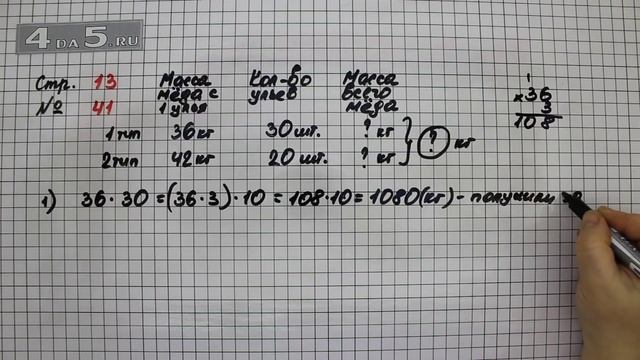 4DA5.RU
Стр. 13 Масса Кол-во Масса
№ 41 мёда с ульев всего
1 улья мёда
1 тип 36 кг 30 шт. ? кг
2 тип 42 кг 20 шт. ? кг
} ? кг
1
× 36
3
108
1) 36 · 30 = (36 · 3) · 10 = 108 · 10 = 1080 (кг) - получили